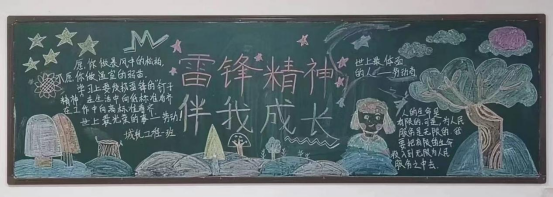 愿你做暴风中的
愿你做温室的弱苗。
学习上要发扬雷锋的"钉子
精神"在生活中向低标准看齐
在工作中向高标准看齐
世上最光荣的事——劳动
雷锋精神
伴我成长
世上最体面
的人——劳动者
人的生命是
有限的，可是，为人民
服务是无限的，我
要把有限的生命
投入到无限为人民
服务之中去。